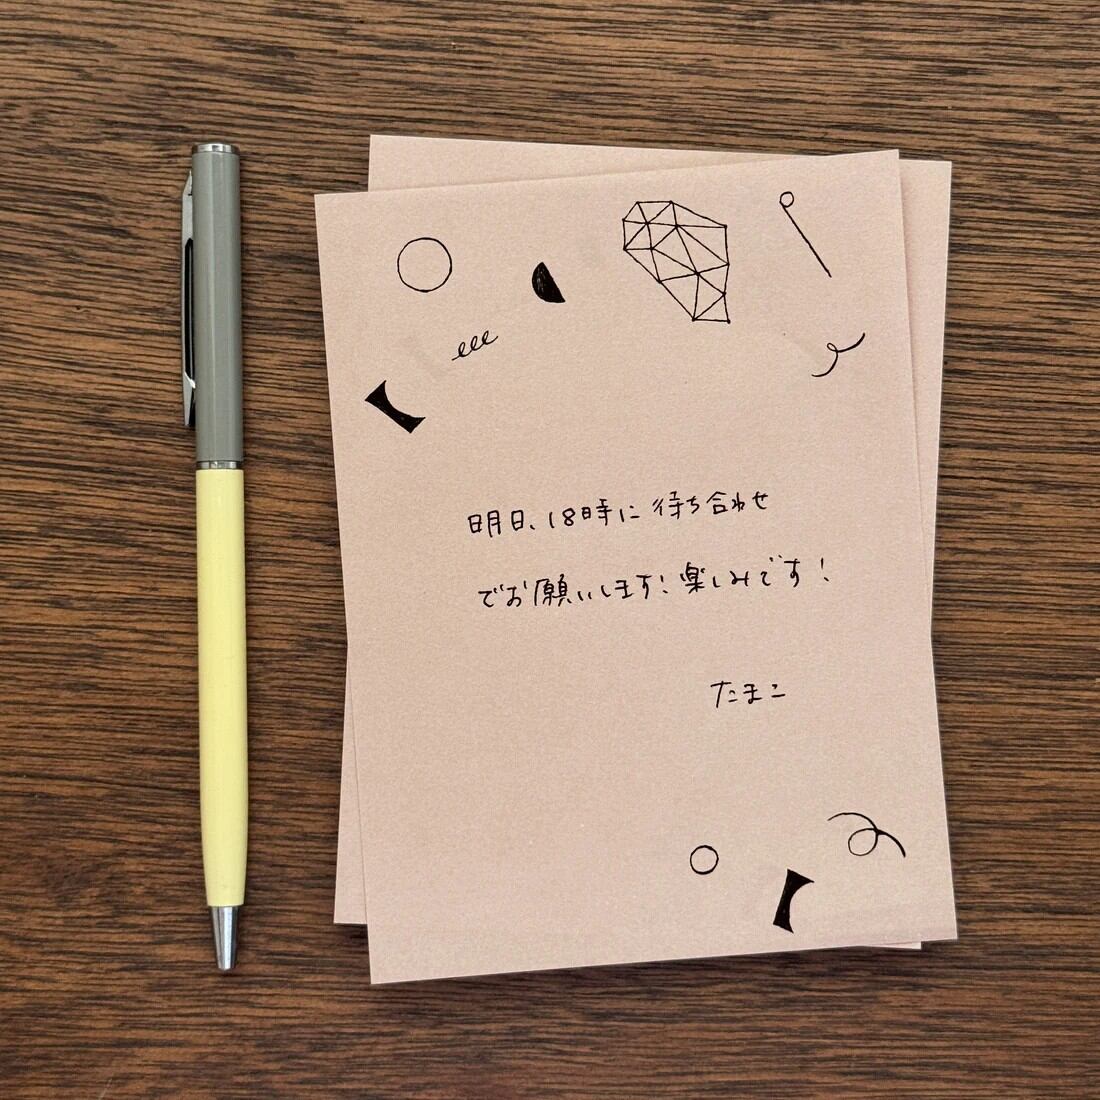 明日、18時に待ち合わせ
でお願いします！楽しみです！
たまこ